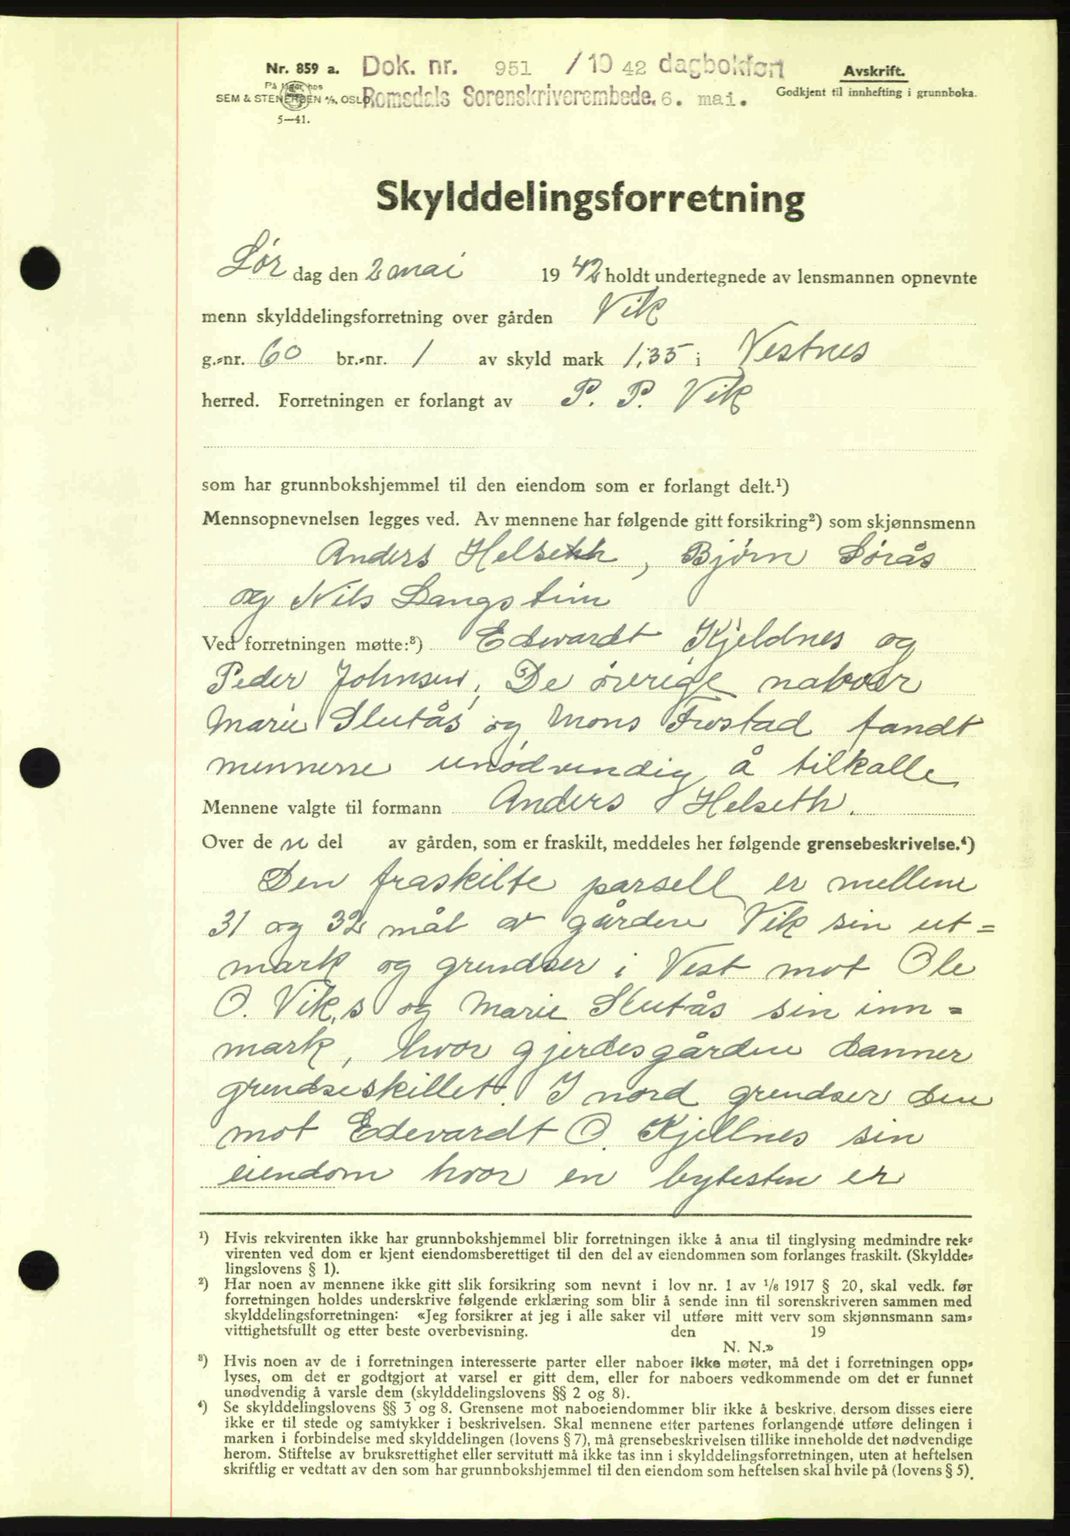 Nr. 859 a. Dok. nr. 951 / 1942 dagbokført Avskrift.
På lager hos
SEM & STENERSEN A/S, OSLO. Romsdals Sorenskriverembede. 6. mai. Godkjent til innhefting i grunnboka.
5—41.
Skylddelingsforretning
Lør dag den 2 mai 1942 holdt undertegnede av lensmannen opnevnte
menn skylddelingsforretning over gården Vik
g.-nr. 60 br.-nr. 1 av skyld mark 1,35 i Vestnes
herred. Forretningen er forlangt av P. P. Vik
som har grunnbokshjemmel til den eiendom som er forlangt delt.¹)
Mennsopnevnelsen legges ved. Av mennene har følgende gitt forsikring²) som skjønnsmenn
Anders Helseth, Bjørn Sørås
og Nils Langstein
Ved forretningen møtte:³) Edevardt Kjeldnes og
Peder Johnsen, De øvrige naboer
Marie Slutås og Mons Frostad fandt
mennene unødvendig å tilkalle
Mennene valgte til formann Anders Helseth.
Over de n del av gården, som er fraskilt, meddeles her følgende grensebeskrivelse.⁴)
Den fraskilte parsell er mellem
31 og 32 mål av gården Vik sin ut=
mark og grendser i Vest mot Ole
O. Vik,s og Marie Slutås sin inn=
mark, hvor gjerdesgården danner
grendseskillet. I nord grendser den
mot Edevardt O. Kjellnes sin
eiendom hvor en bytesten er
¹) Hvis rekvirenten ikke har grunnbokshjemmel blir forretningen ikke å anta til tinglysing medmindre rek-
virenten ved dom er kjent eiendomsberettiget til den del av eiendommen som forlanges fraskilt. (Skyldde-
lingslovens § 1).
²) Har noen av mennene ikke gitt slik forsikring som nevnt i lov nr. 1 av 1/6 1917 § 20, skal vedk. før
forretningen holdes underskrive følgende erklæring som blir å sende inn til sorenskriveren sammen med
skylddelingsforretningen: «Jeg forsikrer at jeg i alle saker vil utføre mitt verv som skjønnsmann sam-
vittighetsfullt og etter beste overbevisning. den 19
N. N.»
³) Hvis noen av de i forretningen interesserte parter eller naboer ikke møter, må det i forretningen opp-
lyses, om det er godtgjort at varsel er gitt dem, eller for naboers vedkommende om det er funnet
unødvendig å varsle dem (skylddelingslovens §§ 2 og 8).
⁴) Se skylddelingslovens §§ 3 og 8. Grensene mot naboeiendommer blir ikke å beskrive, dersom disses eiere
ikke er til stede og samtykker i beskrivelsen. Skal mennene etter partenes forlangende utføre delingen i
marken i forbindelse med skylddelingen (lovens § 7), må grensebeskrivelsen tillike inneholde det nødvendige
herom. Stiftelse av bruksrettighet eller servitutt må ikke tas inn i skylddelingsforretningen, uten at heftelsen
skriftlig er vedtatt av den som har grunnbokshjemmel til den eiendom som heftelsen skal hvile på (lovens § 5).